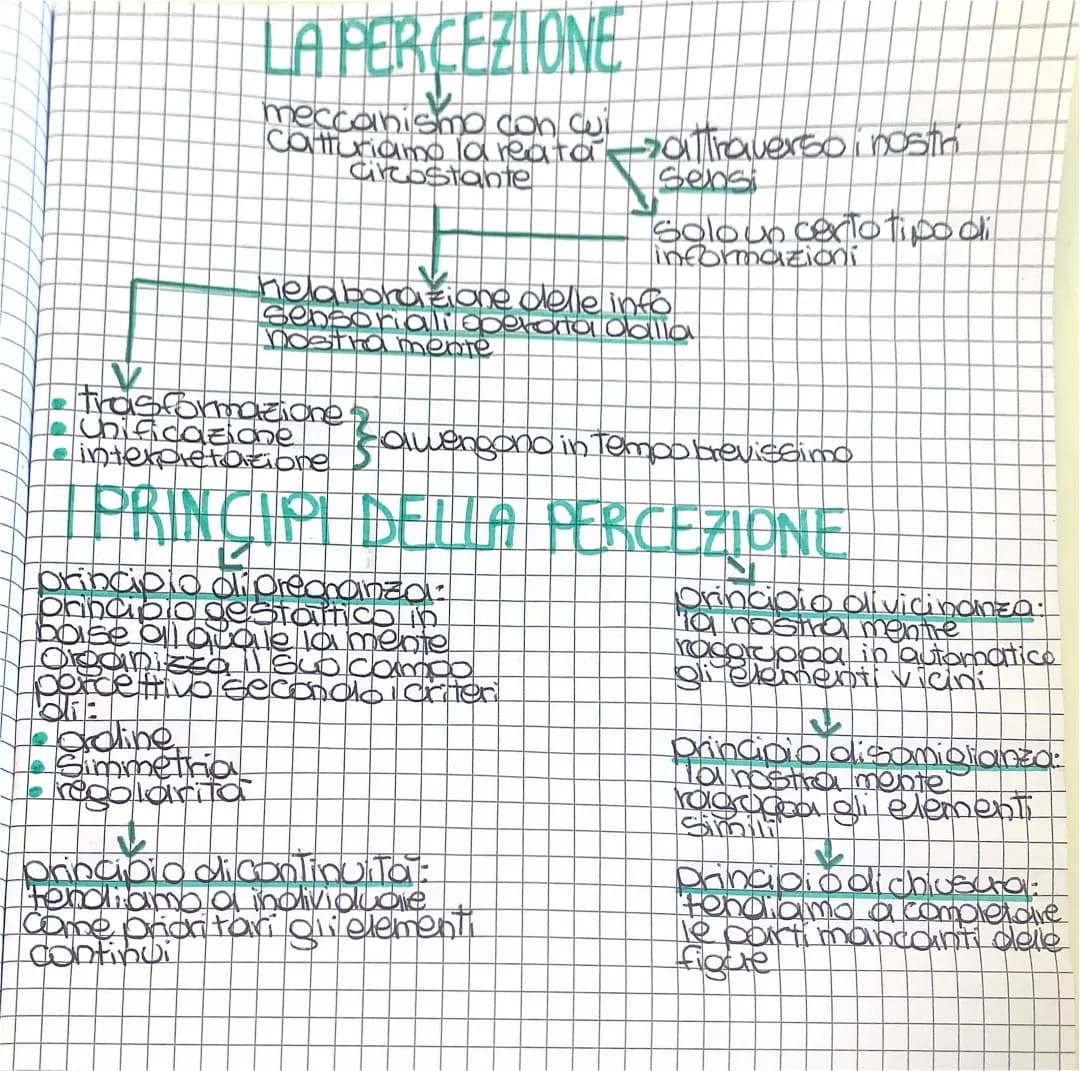 LA PERCEZIONE
meccanismo con cui
catturiamo la reatà
circostante
attraverso i nostri
sensi
solo un certo tipo di
informazioni
rielaborazione delle info
sensoriali operata dalla
nostra mente
• trasformazione
• unificazione
• interpretazione
avvengono in tempo brevissimo
I PRINCIPI DELLA PERCEZIONE
principio di pregnanza:
principio gestaltico in
base al quale la mente
organizza il suo campo
percettivo secondo i criteri
di:
• ordine
• simmetria
• regolarità
principio di continuità:
tendiamo a individuare
come prioritari gli elementi
continui
principio di vicinanza:
la nostra mentre
raggruppa in automatico
gli elementi vicini
principio di somiglianza:
la nostra mente
raggruppa gli elementi
simili
principio di chiusura:
tendiamo a completare
le parti mancanti delle
figure